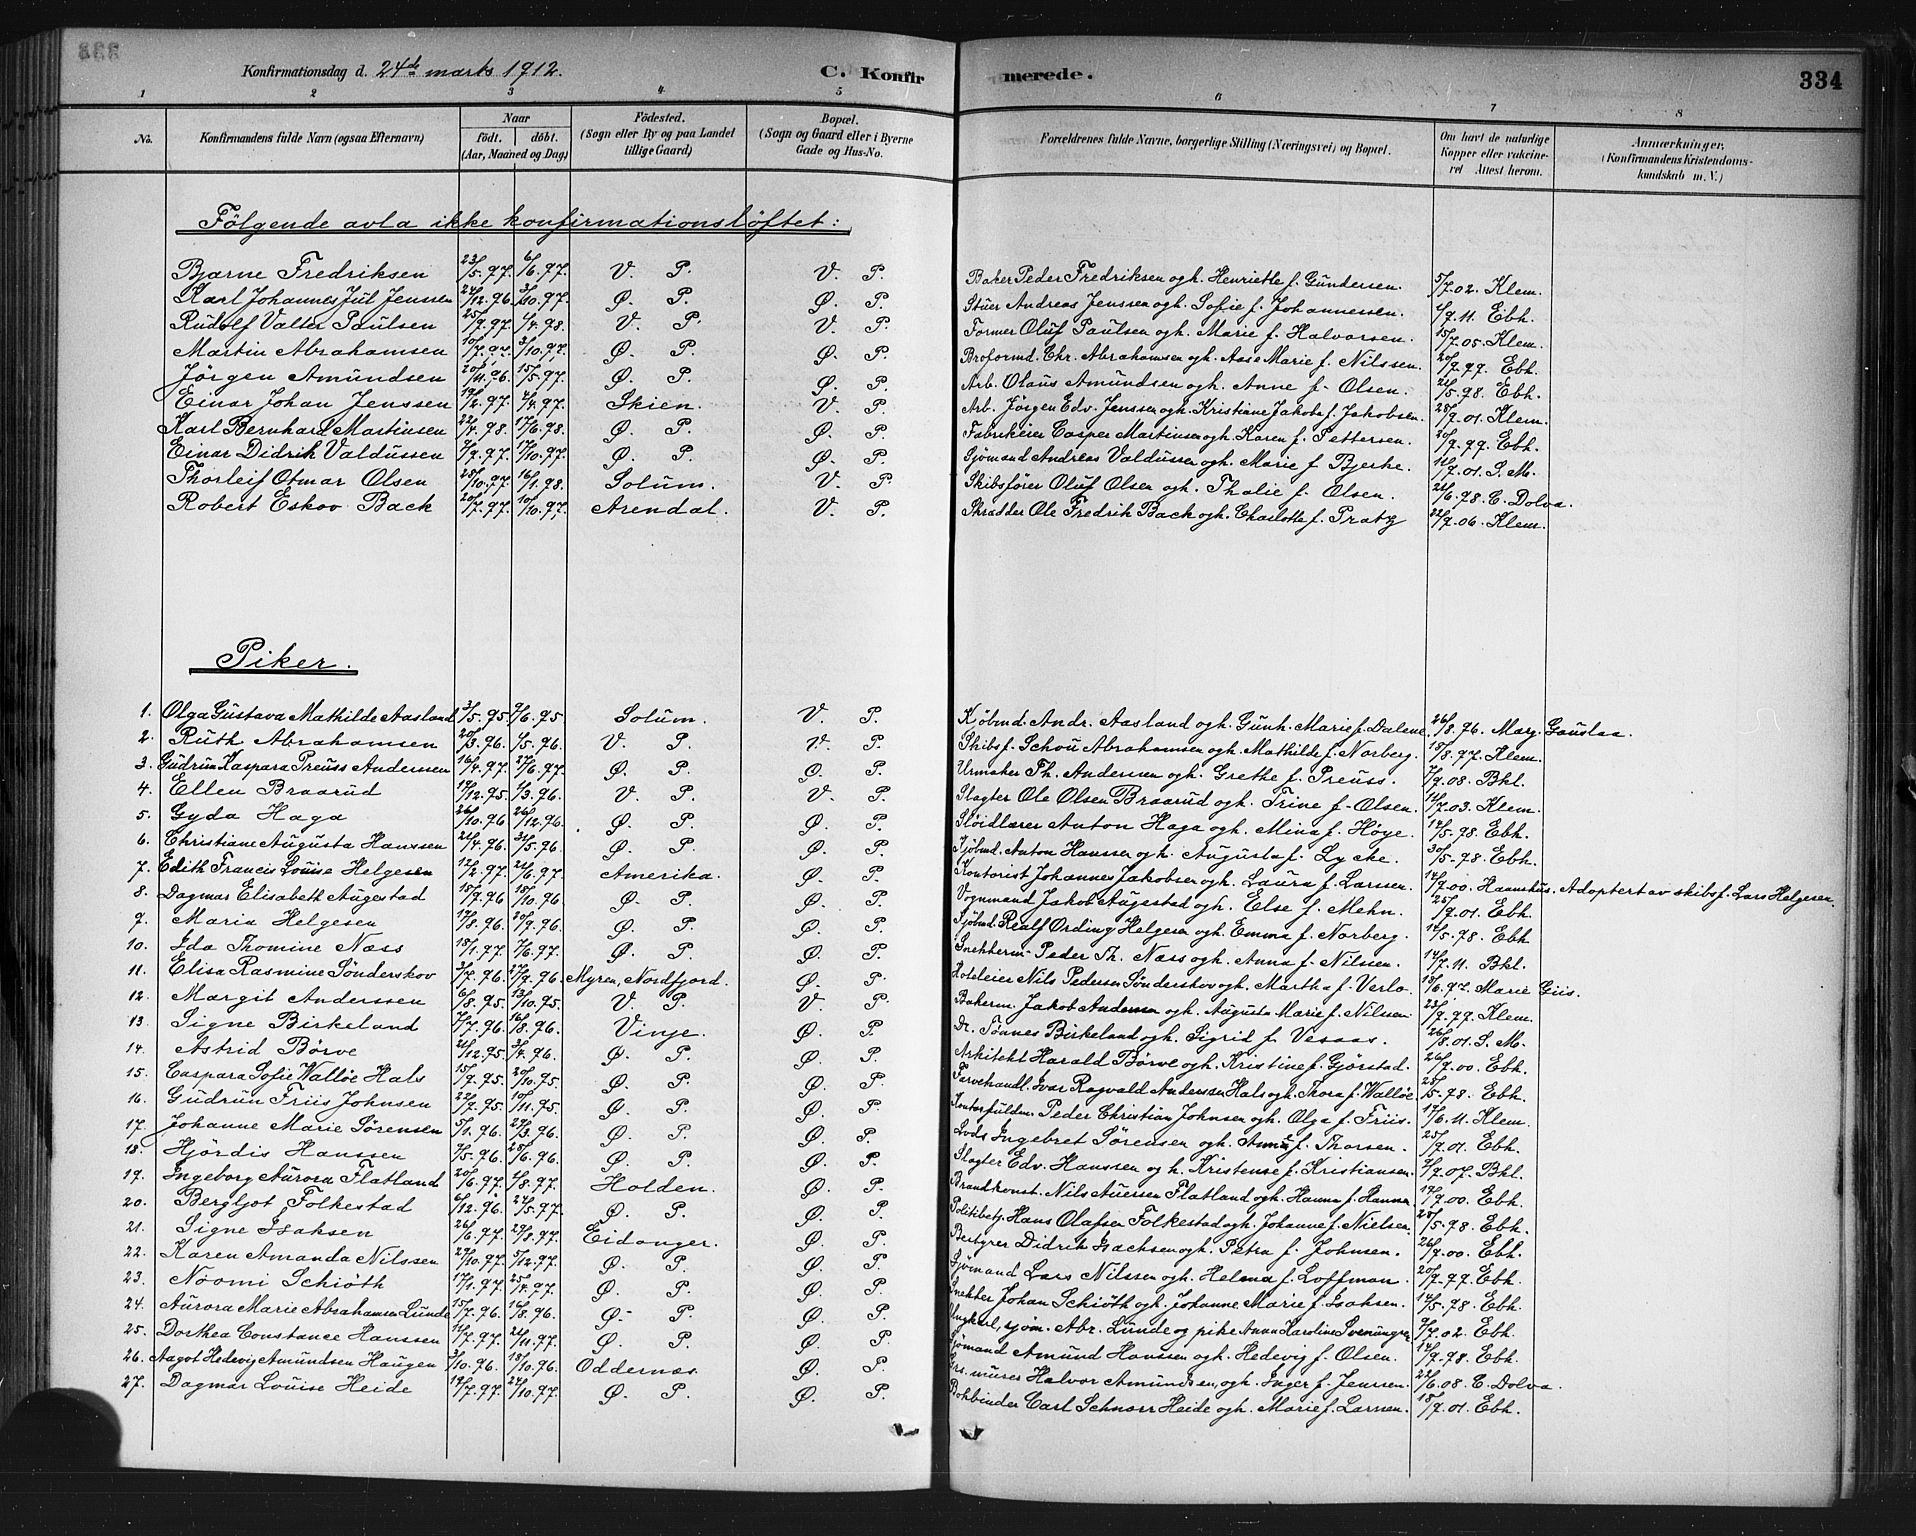 333
Konfirmationsdag d. 24de marts 1912. C. Konfirmerede. 334
1 2 3 4 5 6 7 8
No. Konfirmandens fulde Navn (ogsaa Efternavn) Naar født. døbt. (Aar, Maaned og Dag) Fødested. (Sogn eller By og paa Landet tillige Gaard) Bopæl. (Sogn og Gaard eller i Byerne Gade og Hus-No. Forældrenes fulde Navne, borgerlige Stilling (Næringsvei) og Bopæl. Om havt de naturlige Kopper eller vakcineret Attest herom. Anmærkninger, (Konfirmandens Kristendomskundskab m. V.)
Følgende avla ikke konfirmationsløftet:
Bjarne Fredriksen 23/5.97. 6/6.97. V. P. V. P. Baker Peder Fredriksen og h. Henriette f. Gundersen. 5/7.02. Klem.
Karl Johannes Jul Jenssen 24/12.96. 3/10.97. Ø. P. Ø. P. Stuer Andreas Jenssen og h. Sofie f. Johannessen. 6/9.11. Eibh.
Rudolf Valter Paulsen 25/9.97. 1/4.98. V. P. V. P. Former Oluf Paulsen og h. Marie f. Halvorsen. 15/7.05. Klem.
Martin Abrahamsen 10/7.97. 3/10.97. Ø. P. Ø. P. Broformd. Chr. Abrahamsen og h. Aase Marie f. Nilssen. 20/9.99. Ebh.
Jørgen Amundsen 20/11.96. 15/5.97. Ø. P. Ø. P. Arb. Olaus Amundsen og h. Anne f. Olsen. 21/5.98. Ebh.
Einar Johan Jenssen 19/2.97. 4/4.97. Skien. V. P. Arb. Jørgen Edv. Jenssen og h. Kristiane Jakobe f. Jakobsen. 25/9.01. Klem.
Karl Bernhard Martinsen 22/4.98. 17/6.98. Ø. P. Ø. P. Fabrikeier Casper Martinsen og h. Karen f. Pettersen. 20/9.99. Ebh.
Einar Didrik Valdussen 7/9.97. 17/10.97. Ø. P. Ø. P. Sjømand Andreas Valdussen og h. Marie f. Bjerke. 16/7.01. S. M.
Thorleif Otmar Olsen 25/10.97. 16/1.98. Solum. V. P. Skibsfører Oluf Olsen og h. Thalie f. Olsen. 21/6.98. C. Dolva.
Robert Eskov Back 20/7.97. 10/10.97. Arendal. V. P. Skrædder Ole Fredrik Back og h. Charlotte f. Pratz 22/9.06. Klem.
Piker.
1. Olga Gustava Mathilde Aasland 3/5.95. 9/6.95 Solum. V. P. Kjøbmd. Andr. Aasland og h. Gunh. Marie f. Dalene. 26/8.96. Marg. Gauslaa.
2. Ruth Abrahamsen 20/3.96. 1/5.96. V. P. V. P. Skibsf. Schou Abrahamsen og h. Mathilde f. Norberg. 18/8.97. Klem.
3. Gudrun Kaspara Preuss Andersen 16/4.97. 27/6.97. Ø. P. Ø. P. Urmaker Th. Andersen og h. Grethe f. Preuss. 7/9.08. Bkl.
4. Ellen Braarud 19/12.95. 7/3.96. V. P. V. P. Slagter Ole Olsen Braarud og h. Trine f. Olsen. 14/7.03. Klem.
5. Gyda Haga 26/10.96 26/12.96. Ø. P. Ø. P. Sløidlærer Anton Haga og h. Mina f. Høye. 14/5.98. Ebh.
6. Christiane Augusta Hanssen 21/4.96. 31/5.96. Ø. P. Ø. P. Kjøbmd. Anton Hanssen og h. Augusta f. Lycke. 30/5.98. Ebh.
7. Edith Francis Louise Helgesen 12/2.97. 21/6.97. Amerika. Ø. P. Kontorist Johannes Jakobsen og h. Laura f. Larssen. 14/9.00. Haanshus. Adoptert av skibsf. Lars Helgesen.
8. Dagmar Elisabeth Augestad 15/9.96 18/10.96 Ø. P. Ø. P. Vognmand Jakob Augestad og h. Else f. Mehn. 25/9.01. Ebh.
9. Maria Helgesen 17/8.96. 20/9.96. Ø. P. Ø. P. Kjøbmd. Realf Ording Helgesen og h. Emma f. Norberg. 14/5.98. Ebh
10. Ida Thomine Næss 15/1.97. 7/6.97. Ø. P. Ø. P. Snekkerm. Peder Th. Næss og h. Anna f. Nilssen. 14/7.11. Bkl.
11. Elisa Rasmine Sønderskov 3/7.96. 27/9.96 Myren, Nordfjord. Ø. P. Hoteleier Nils Pedersen Sønderskov og h. Martha f. Verlo. 15/6.97. Marie Giis.
12. Margit Anderssen 6/8.95. 13/10.95. V. P. V. P. Bakerm. Jakob Andersen og h. Augusta Marie f. Nilssen 23/9.99. Klem.
13. Signe Birkeland 7/7.96. 16/8.96. Vinje. Ø. P. Dr. Tønnes Birkeland og h. Sigrid f. Vesaas. 26/8.01. S. M.
14. Astrid Børve 21/12.95. 3/4.96. Ø. P. Ø. P. Arkitekt Harald Børve og h. Kristine f. Gjørstad. 26/9.00. Ebh.
15. Caspara Sofie Walløe Hals 15/9.95. 20/10.95 Ø. P. Ø. P. Farvehandl. Ivar Ragvald Anderssen Hals og h. Thora f. Walløe. 25/5.98. Ebh.
16. Gudrun Friis Johnsen 22/9.95. 10/11.95. Ø. P. Ø. P. Kontorfuldm. Peder Christian Johnsen og h. Olga f. Friis. 17/6.11. Klem.
17. Johanne Marie Sørensen 5/1.96. 29/3.96. Ø. P. Ø. P. Lods Ingebret Sørensen og h. Anna f. Thorsen. 25/9.01. Ebh.
18. Hjørdis Hanssen 9/5.96. 28/6.96. Ø. P. Ø. P. Slagter Edv. Hanssen og h. Kristense f. Kristiansen. 9/9.07. Bkl.
19. Ingeborg Aurora Flatland 20/6.97. 1/8.97. Holden. Ø. P. Brandkonst. Nils Auerssen Flatland og h. Hanna f. Hanssen 19/9.00. Ebh.
20. Bergljot Folkestad 6/12.96. 24/5.97. Ø. P. Ø. P. Politibetj. Hans Olafsen Folkestad og h. Johanne f. Nielsen. 28/5.98. Ebh.
21. Signe Isaksen 26/6.97. 29/8.97. Eidanger. Ø. P. Bestyrer Didrik Isachsen og h. Petra f. Johnsen. 26/9.00. Ebh.
22. Karen Amanda Nilssen 27/10.97. 5/12.97. Ø. P. Ø. P. Sjømand Lars Nilssen og h. Helma f. Loffman. 20/9.99. Ebh.
23. Noomi Schiøth 17/1.97. 25/4.97. Ø. P. Ø. P. Snekker Johan Schiøth og h. Johanne Marie f. Isaksen. 14/5.98. Ebh.
24. Aurora Marie Abrahamsen Lunde 15/7.96. 16/8.96. Ø. P. Ø. P. Ungkarl, sjøm. Abr. Lunde og pike Anna Karoline Svenningsen 9/7.02. Ebh.
25. Dorthea Constance Hanssen 11/7.97. 21/11.97. Ø. P. Ø. P. Sjømand Amund Hanssen og h. Hedevig f. Olsen. 14/9.98. Ebh.
26. Aagot Hedevig Amundsen Haugen 3/10.96. 18/10.96. Oddernæs Ø. P. Grs. murer Halvor Amundsen, og h. Inger f. Jenssen. 22/6.08. C. Dolva.
27. Dagmar Louise Heide 19/7.97. 24/10.97. Ø. P. Ø. P. Bokbinder Carl Schnarr Heide og h. Marie f. Larssen. 18/9.01. Ebh.